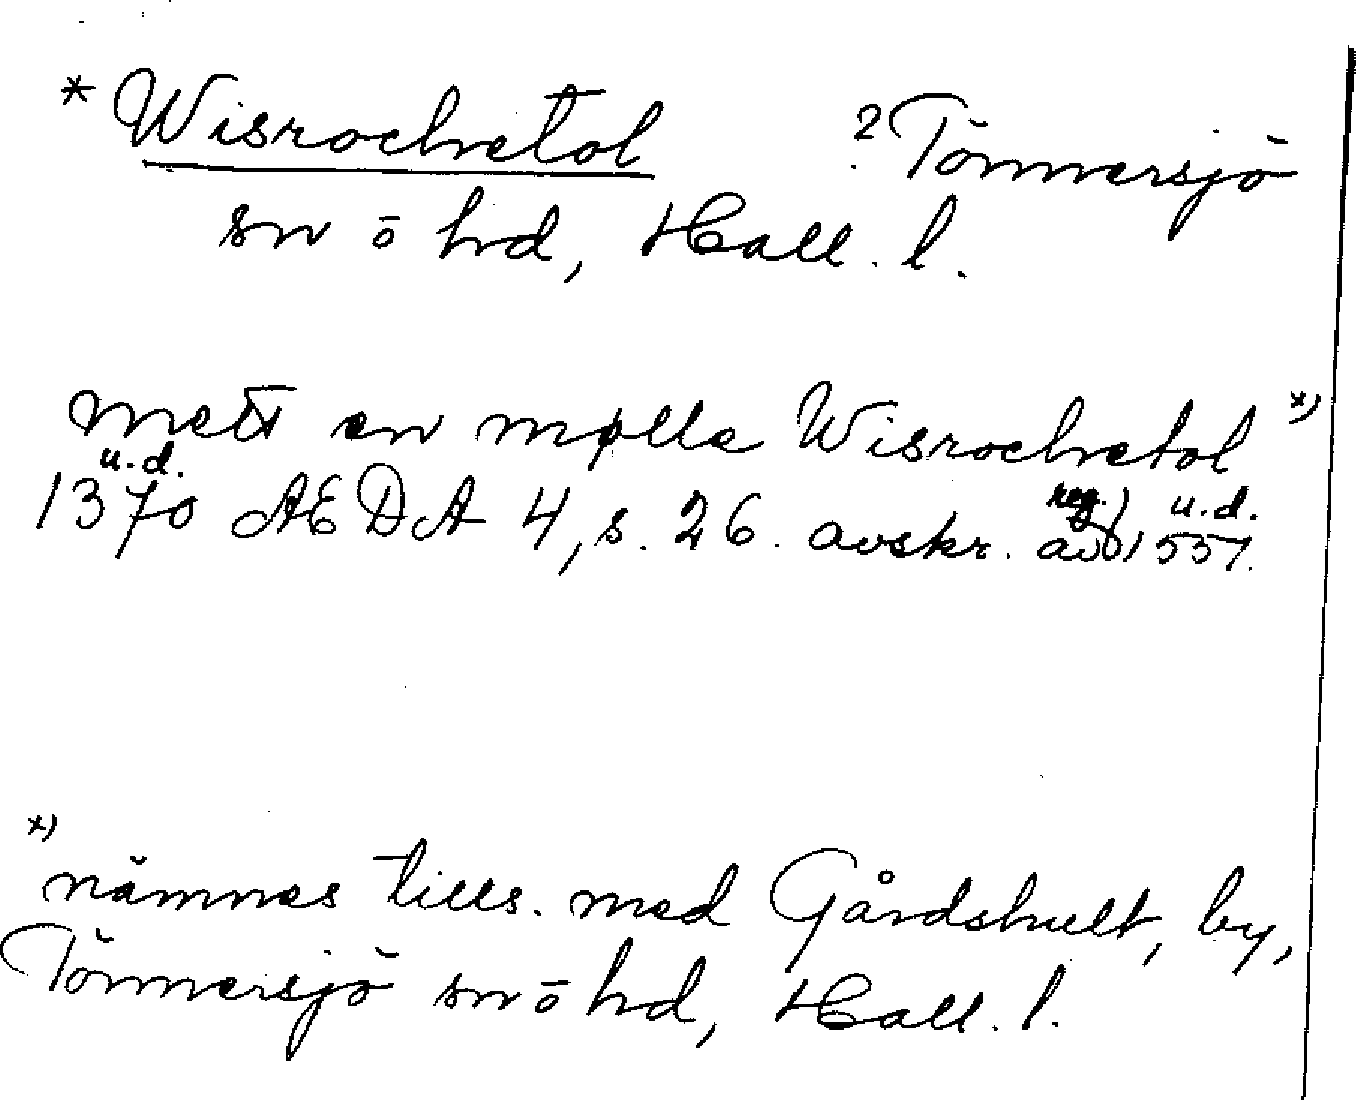 * Wisrochetol ? Tönnersjö
sn o hd, Hall. l.
mett en mølle Wisrochetol *)
u.d. reg.) u.d.
1370 AEDA 4, s. 26. avskr. av 1551.
*)
nämnes tills. med Gårdshult, by,
Tönnersjö sn o hd, Hall. l.